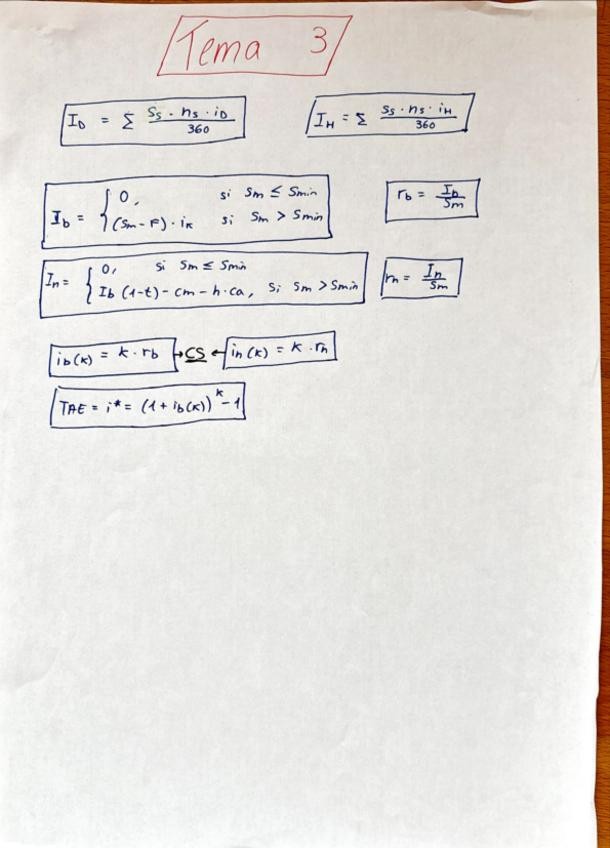 Tema 3
I_D = Σ (S_s · n_s · i_D)/360
I_H = Σ (S_s · n_s · i_H)/360
I_b = { 0, si S_m ≤ S_min
(S_m − F) · i_k si S_m > S_min
r_b = I_b/S_m
I_n = { 0, si S_m ≤ S_min
I_b (1−t) − cm − h·ca, si S_m > S_min
r_n = I_n/S_m
i_b(k) = k · r_b → CS ← i_n(k) = k · r_n
TAE = i* = (1 + i_b(k))^k − 1